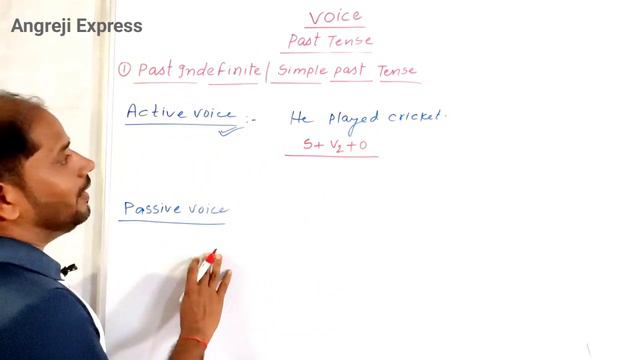 Angreji Express
Voice
Past Tense
① Past Indefinite / Simple past Tense
Active voice :- He played cricket.
S + V₂ + O
Passive voice